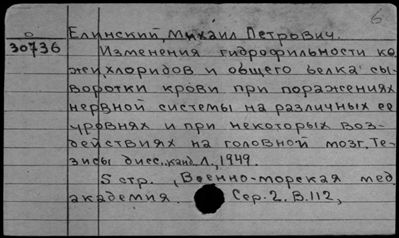 6
Елинский, Михаил Петрович.
30736
Изменения гидрофильности ко-
жи, хлоридов и общего белка сы-
воротки крови при поражениях
нервной системы на различных ее
уровнях и при некоторых воз-
действиях на головной мозг. Те-
зисы дисс., канд. Л., 1949.
5 стр., Военно-морская мед.
академия. Сер. 2. В. 112,